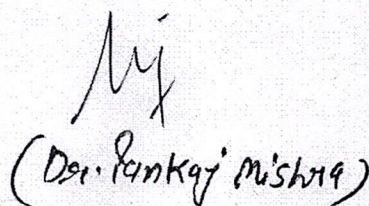 (Dr. Pankaj Mishra)